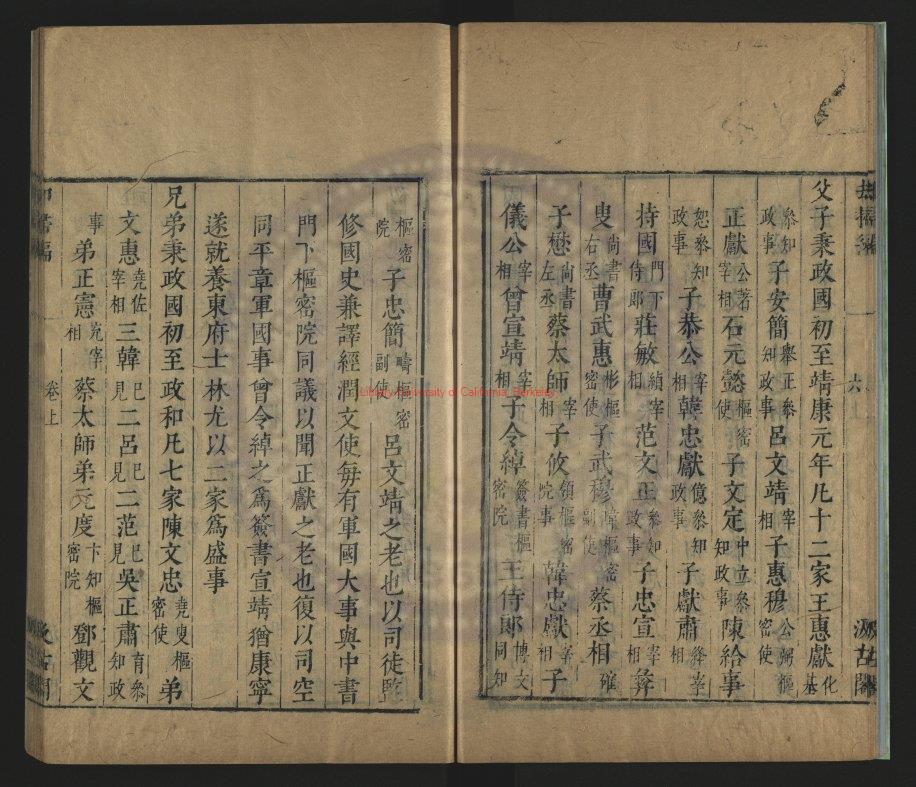 却掃編 六 汲古閣
父子秉政國初至靖康元年凡十二家王惠獻化基
參知政事子安簡舉正參知政事呂文靖宰相子惠穆公弼樞密使
正獻公著宰相石元懿樞密使子文定中立參知政事陳給事
恕參知政事子恭公宰相韓忠獻億參知政事子獻肅絳宰相
持國門下侍郎莊敏縝宰相范文正參知政事子忠宣宰相彝
叟尚書右丞曹武惠彬樞密使子武穆瑋樞密副使蔡丞相確
子懋尚書左丞蔡太師宰相子攸領樞密院事韓忠獻宰相子
儀公宰相曾宣靖宰相子令綽簽書樞密院王侍郎博文同知
樞密院子忠簡疇樞密副使呂文靖之老也以司徒監
修國史兼譯經潤文使每有軍國大事與中書
門下樞密院同議以聞正獻之老也復以司空
同平章軍國事曾令綽之爲簽書宣靖猶康寧
遂就養東府士林尤以二家爲盛事
兄弟秉政國初至政和凡七家陳文忠堯叟樞密使弟
文惠堯佐宰相三韓已見二呂已見二范已見吳正肅育參知政
事弟正憲充宰相蔡太師弟元度卞知樞密院鄧觀文
却掃編 卷上 汲古閣
Library, University of California, Berkeley